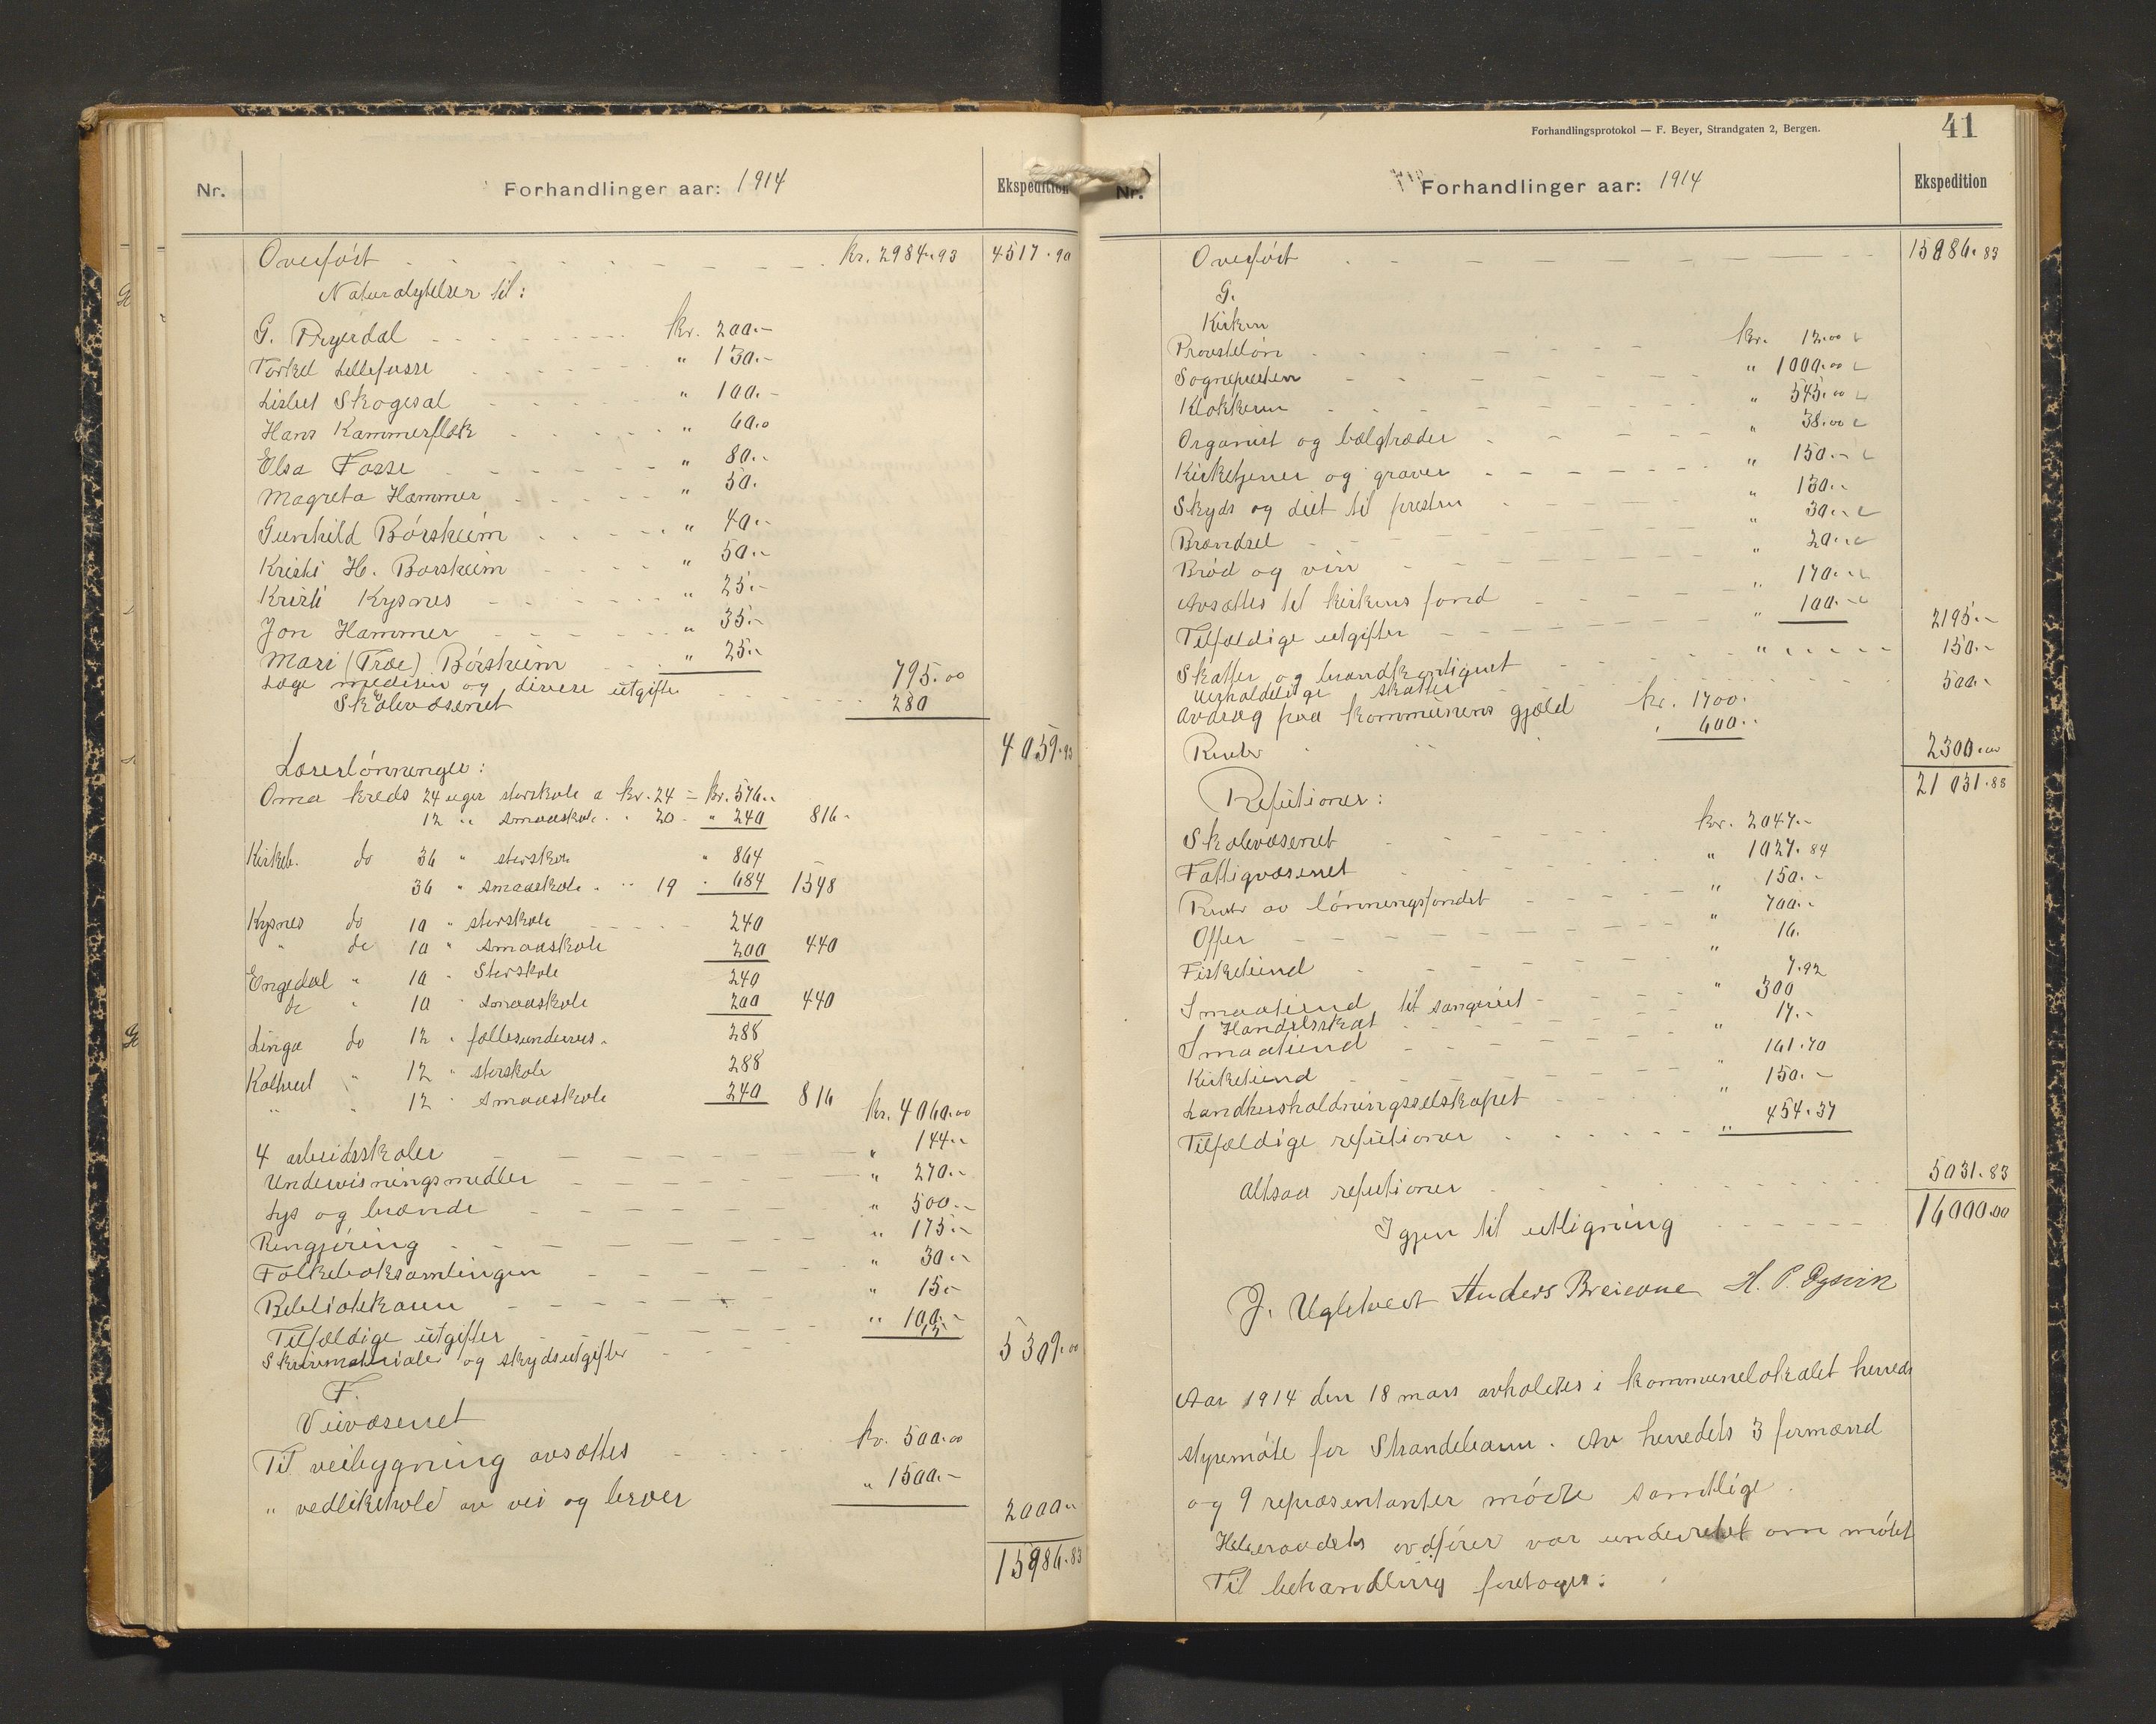 Nr. Forhandlinger aar: 1914 Ekspedition
Overført kr. 2984.93 4517.90
Naturalytelser til:
G. kr. 200.-
Torkel Lillefosse " 130.-
Lisbet Skogesal " 100.-
Hans Kammerflæk " 60.0
Elsa Fosse " 80.-
Magreta Hammer " 50.
Gunhild Børsheim " 40.-
Kristi H. Børsheim " 50.-
Kristi Kysnes " 25.-
Jon Hammer " 35.-
Mari (Træ) Børsheim " 25.- 795.00
Læge medisin og divere utgifter 280
Skolevæsenet 4059.93
Lærerlønninger:
Oma kreds 24 uger storskole a kr. 24 = kr. 576.-
12 " smaaskole " 20 - " 240 816-
Kirkeb. do 36 " storskole " 864
36 " smaaskole " 19 " 684 1548
Kysnes do 10 " storskole 240
" do 10 " smaaskole 200 440
Engedal " 10 " Storskole 240
do " 10 " smaaskole 200 440
Linga do 12 " fællesundervis. 288
Kaltveit " 12 " storskole 288
" " 12 " smaaskole 240 816 kr. 4060.00
4 arbeidsskoler " 144.-
Undervisningsmedler " 270.-
Lys og brænde " 500.-
Rengjøring " 175.-
Folkeboksamlingen " 30.-
Bibliotekaren " 15.-
Tilfældige utgifter " 100.-
Skrivematerialer og skydsutgifter 15 5309.00
F.
Veivæsenet
Til veibygning avsættes kr. 500.00
" vedlikehold av vei og broer " 1500.- 2000.-
15886.83
Forhandlingsprotokol — F. Beyer, Strandgaten 2, Bergen. 41
Nr. Forhandlinger aar: 1914 Ekspedition
Overført 15886.83
G.
Kirken
Provsteløn kr. 12.00
Sognepresten " 1000.00
Klokkeren " 545.00
Organist og bælgtræder " 38.00
Kirketjener og graver " 150.-
Skyds og diet til presten " 130.-
Brændsel " 30.-
Brød og vin " 20.-
Avsættes til kirkens fond " 170.-
Tilfældige utgifter " 100.- 2195.-
Skatter og brandkontigent 150.-
Uerholdelige skatter 500.-
Avdrag paa kommunens gjæld kr. 1700.
Renter " 600.- 2300.00
21031.83
Refutioner:
Skolevæsenet kr. 2047.-
Fattigvæsenet " 1027.84
Renter av lønningsfondet " 150.-
Offer " 700.-
Fisketiend " 16.
Smaatiend til sangeriet " 7.92
Handelsskat 300
Smaatiend " 17.-
Kirketiend " 161.70
Landhusholdningsselskapet " 150.-
Tilfældige refutioner " 454.37
Altsaa refutioner 5031.83
Igjen til utligning 16000.00
J. Ugletveit Anders Breievne H. P. Dysvik
Aar 1914 den 18 mars avholdtes i kommunelokalet herreds
styremøte for Strandebarm. Av herredets 3 formænd
og 9 repræsentanter mødte samtlige.
Helseraadets ordfører var underrettet om møtet
Til behandling foretoges: